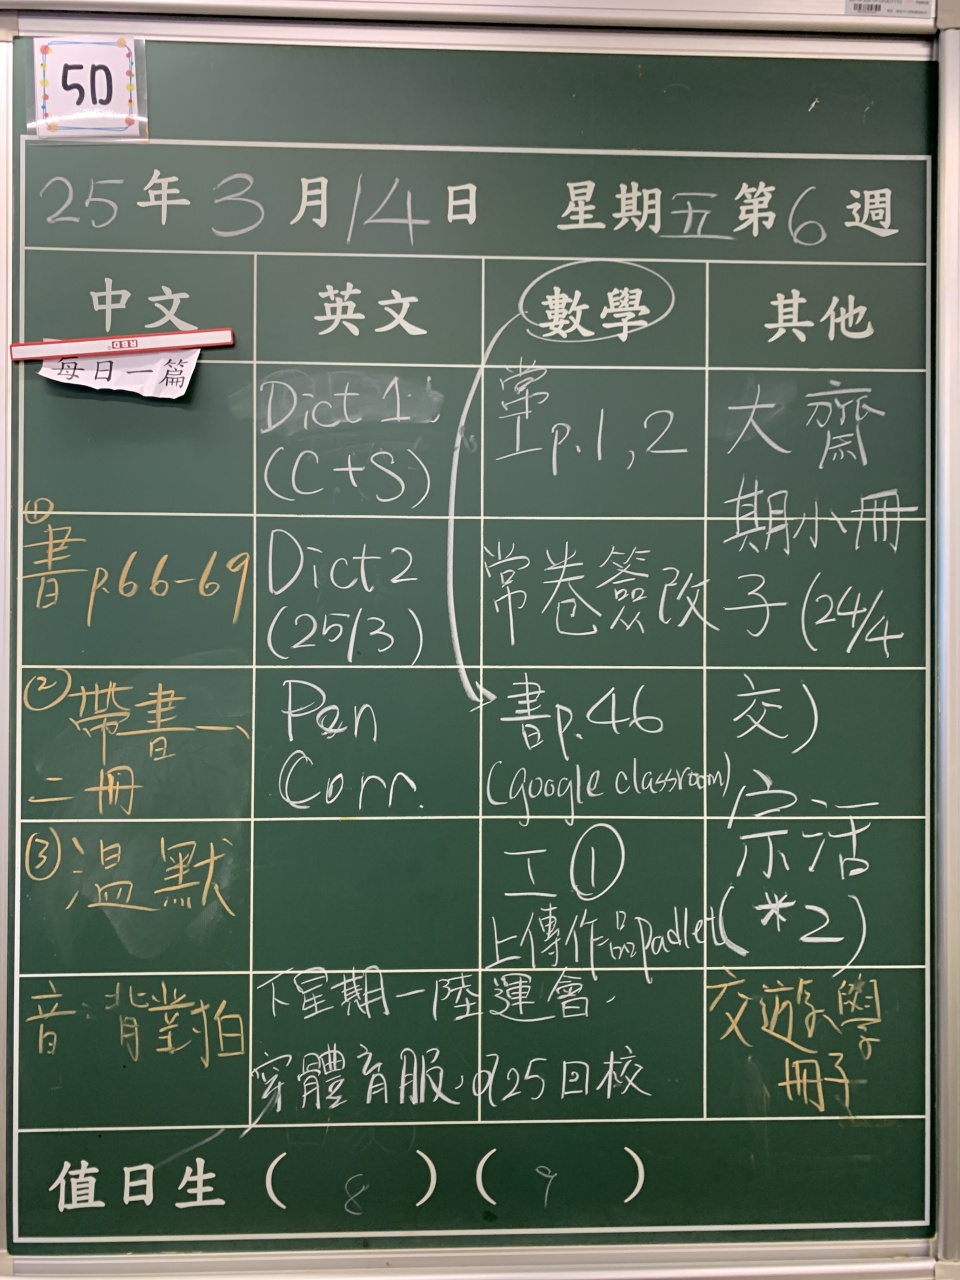 5D
25年3月14日 星期五第6週
中文 英文 數學 其他
RBD
每日一篇
①書p.66-69
②帶書一、
二冊
③溫默
音 背對拍
Dict 1
(C+S)
Dict 2
(25/3)
Pen
Corr.
常工p.1,2
常卷簽改
書p.46
(google classroom)
工①
上傳作品padlet
大齋
期小冊
子(24/4
交)
宗活
(*2)
下星期一陸運會.
穿體育服,925回校
交遊學
冊子
值日生 ( 8 ) ( 9 )